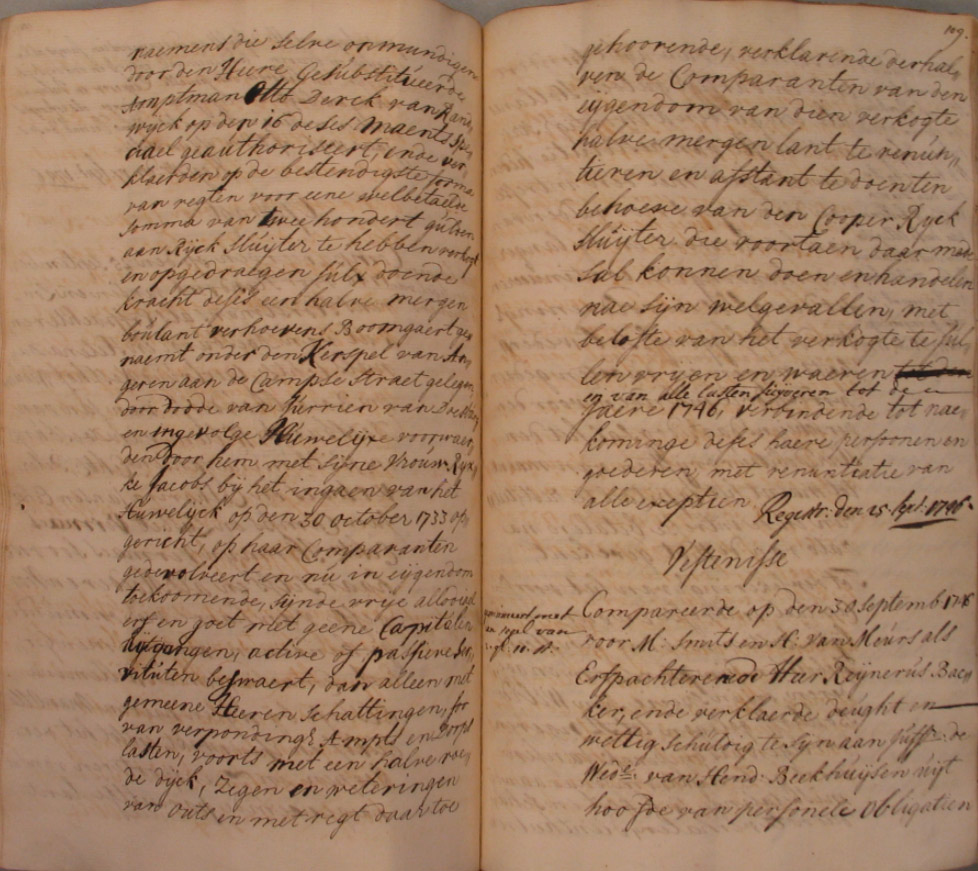 naemens die selve onmundigen
door den Heere Gesubstitueerde
Amptman Otto Derck van Ran
wijck op den 16 deses maents spe
ciael geauthoriseert, ende ver
klaerden op de bestendigste forma
van regten voor eene welbetaelde
somma van twee hondert gulden
aan Ryck Sluijter te hebben verkogt
en opgedraegen sulx doende
kracht deses een halve mergen
boulant verhoevens Boomgaert ge
naemt onder den Kerspel van An
geren aan de Campse straet gelegen
door doode van Jurrien van
en ingevolge Huwelijxe voorwaer
den door hem met sijne Vrouw Ryn
ke Jacobs bij het ingaen van het
Huwelijck op den 30 october 1733 op
gericht, op haar Comparanten
gedevolveert en nu in eijgendom
toekoomende, sijnde vrije allodiael
erf en goet met geene Capitalen
uitgangen, active of passive ser
vituten beswaert, dan alleen met
gemeene Heeren Schattingen, for
van verpondings Ampts en Dorps
lasten, voorts met een halve roe
de dijck, Zegen en weteringen
van outs en met regt daar toe
109.
gehoorende, verklarende derhal,
ven de Comparanten van den
eijgendom van dien verkogte
halve mergen lant te renun,,
tieren en afstant te doen ten
behoeve van den Cooper Ryck
Sluijter die voortaen daar mede
sal konnen doen en handelen
nae sijn welgevallen, met
belofte van het verkogte te sul,
len vrijen en waeren
en van alle lasten suijveren tot de
jaere 1746, verbindende tot nae,
kominge deses haere persoonen en
goederen met renuntiatie van
alle exceptien Registr: den 25 Sept: 1746.
Vestenisse
Compareerde op den 30 Septemb 1746
voor M: Smits en H: van Meurs als
Erfpachteren de Heer Reijnerus Bac
ker, ende verklaerde deught en
wettig schuldig te sijn aan Juffr: de
Wed: van Hend: Beekhuijsen uijt
hoofde van personele obligatien
met
van